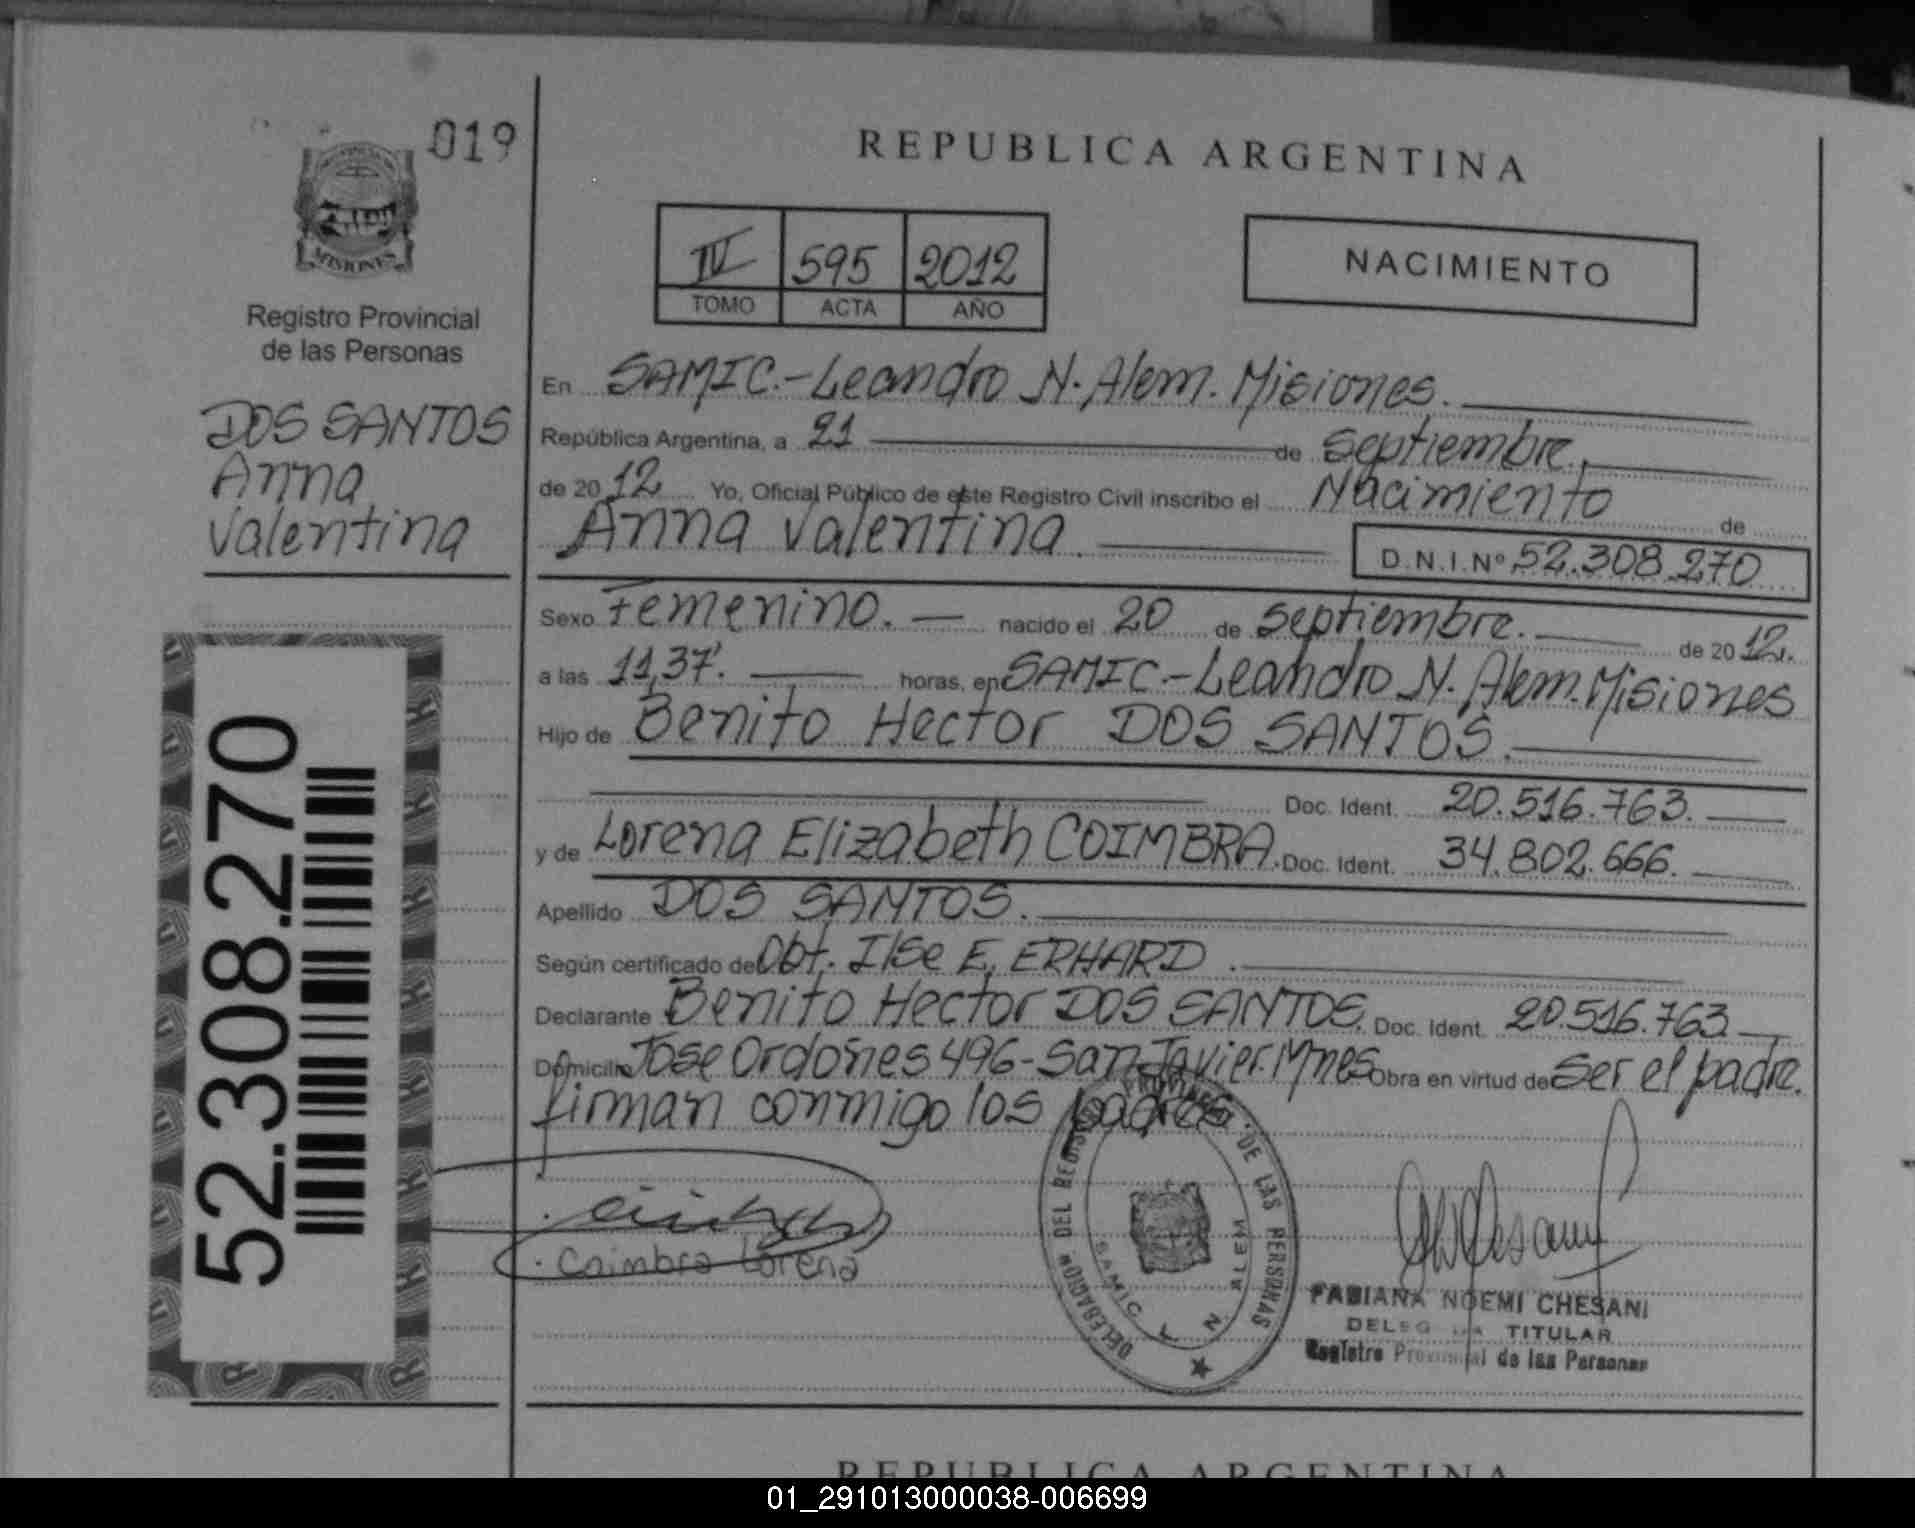 019
MISIONES
Registro Provincial
de las Personas
DOS SANTOS
Anna
Valentina
52.308.270
REPUBLICA ARGENTINA
IV 595 2012
TOMO ACTA AÑO
NACIMIENTO
En SAMIC.-Leandro N. Alem. Misiones.
República Argentina, a 21 de septiembre.
de 2012 Yo, Oficial Público de este Registro Civil inscribo el Nacimiento de
Anna Valentina. D.N.I. Nº 52.308.270
Sexo Femenino. nacido el 20 de septiembre. de 2012.
a las 11,37'. horas, en SAMIC.-Leandro N. Alem. Misiones
Hijo de Benito Hector DOS SANTOS.
Doc. Ident. 20.516.763.
y de Lorena Elizabeth COIMBRA. Doc. Ident. 34.802.666.
Apellido DOS SANTOS.
Según certificado de Obt. Ilse E. ERHARD.
Declarante Benito Hector DOS SANTOS. Doc. Ident. 20.516.763
Domicilio Jose Ordoñes 496-San Javier. Mnes Obra en virtud de ser el padre.
firman conmigo los padres
Coimbra Lorena
DELEGACION DEL REGISTRO PROVINCIAL DE LAS PERSONAS
SAMIC L. N. ALEM
FABIANA NOEMI CHESANI
DELEGADA TITULAR
Registro Provincial de las Personas
REPUBLICA ARGENTINA
01_291013000038-006699